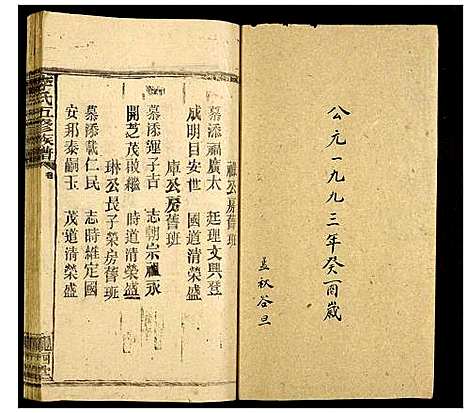 公元一九九三年癸酉歲
孟秋谷旦
禮公房舊班
慕添福廣太 廷理文興登
咸明目安世 國道清榮盛
庫公房舊班
慕添運子吉 志朝宗福永
開芝茂啟繼 時道清榮盛
琳公長子榮房舊班
慕添載仁民 志時維定國
安邦泰嗣玉 茂道清榮盛
氏五修族譜